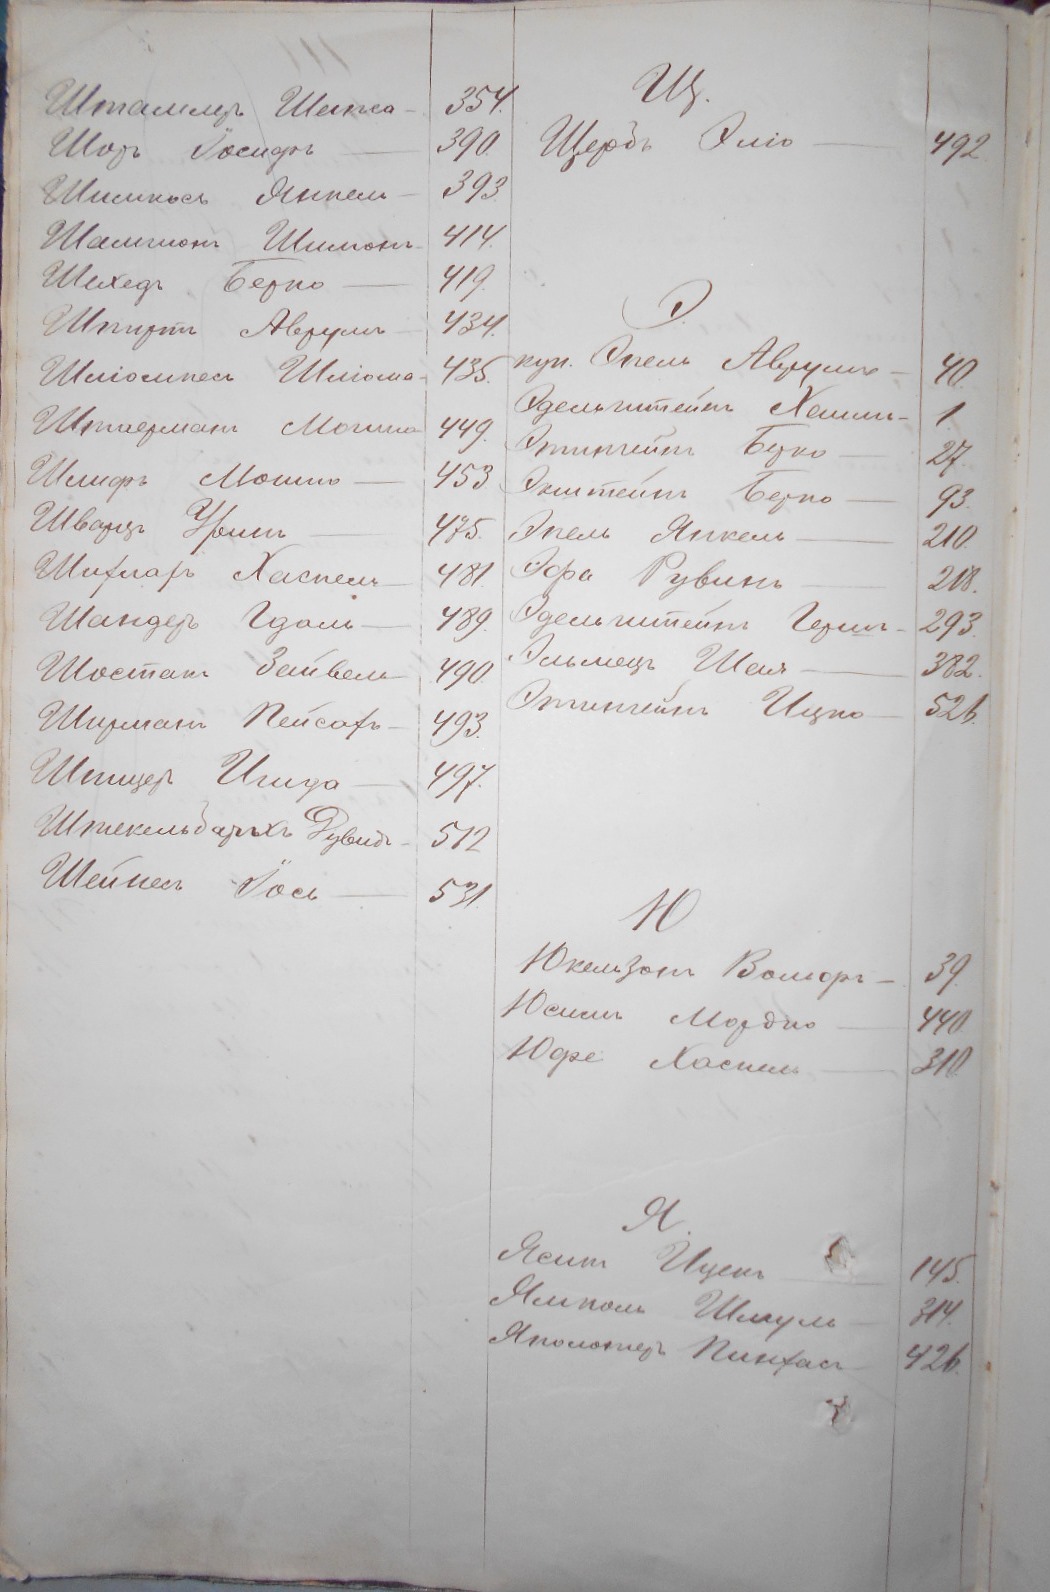 Штаммлеръ Шепса - 354.
Шоръ Іосифъ — 390.
Шимкосъ Янкель - 393.
Шампионъ Шимонъ - 414.
Шехедъ Берко — 419.
Шпиртъ Аврумъ - 434.
Шліомкесъ Шліома - 435.
Штаерманъ Мошко 449.
Шлифъ Мошко — 453
Шварцъ Уринъ — 475.
Шифларъ Хаскель — 481.
Шандеръ Гдаль — 489.
Шостакъ Зейвель - 490.
Ширманъ Пейсахъ - 493.
Шпицеръ Ицида — 497.
Штекельбархъ Дувидъ - 512
Шейнесъ Іось — 531.
Щ.
Щербъ Эліо — 492.
Э.
куп. Эпель Аврумъ - 40.
Эдельштейнъ Хаимъ - 1.
Этингейнъ Берко — 27.
Экштейнъ Берко — 93.
Эпель Янкель — 210.
Эфа Рувинъ — 218.
Эдельштейнъ Гершъ - 293.
Эльмецъ Шая — 382.
Этингейнъ Ицко — 526.
Ю
Юкельзонъ Вольфъ - 39.
Юсимъ Мордко — 440.
Юфе Хаскель — 310.
Я.
Ясинъ Ицекъ — 145.
Ямполь Шмуль — 314.
Яполотеръ Пинхасъ — 426.